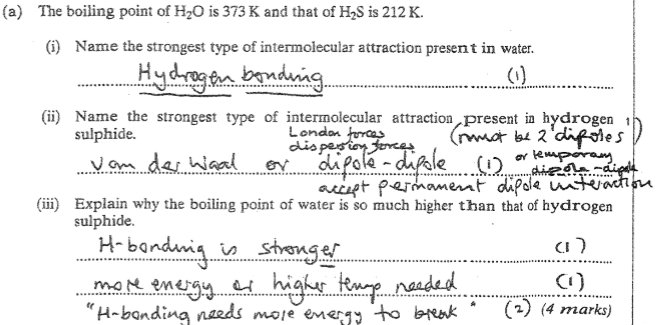 (a) The boiling point of H₂O is 373 K and that of H₂S is 212 K.
(i) Name the strongest type of intermolecular attraction present in water.
Hydrogen bonding (1)
(ii) Name the strongest type of intermolecular attraction present in hydrogen
sulphide.
London forces
dispersion forces
(must be 2 dipoles
or temporary
dipole-dipole
van der Waal or dipole-dipole (1)
accept permanent dipole interaction
(iii) Explain why the boiling point of water is so much higher than that of hydrogen
sulphide.
H-bonding is stronger (1)
more energy or higher temp needed (1)
"H-bonding needs more energy to break" (2) (4 marks)